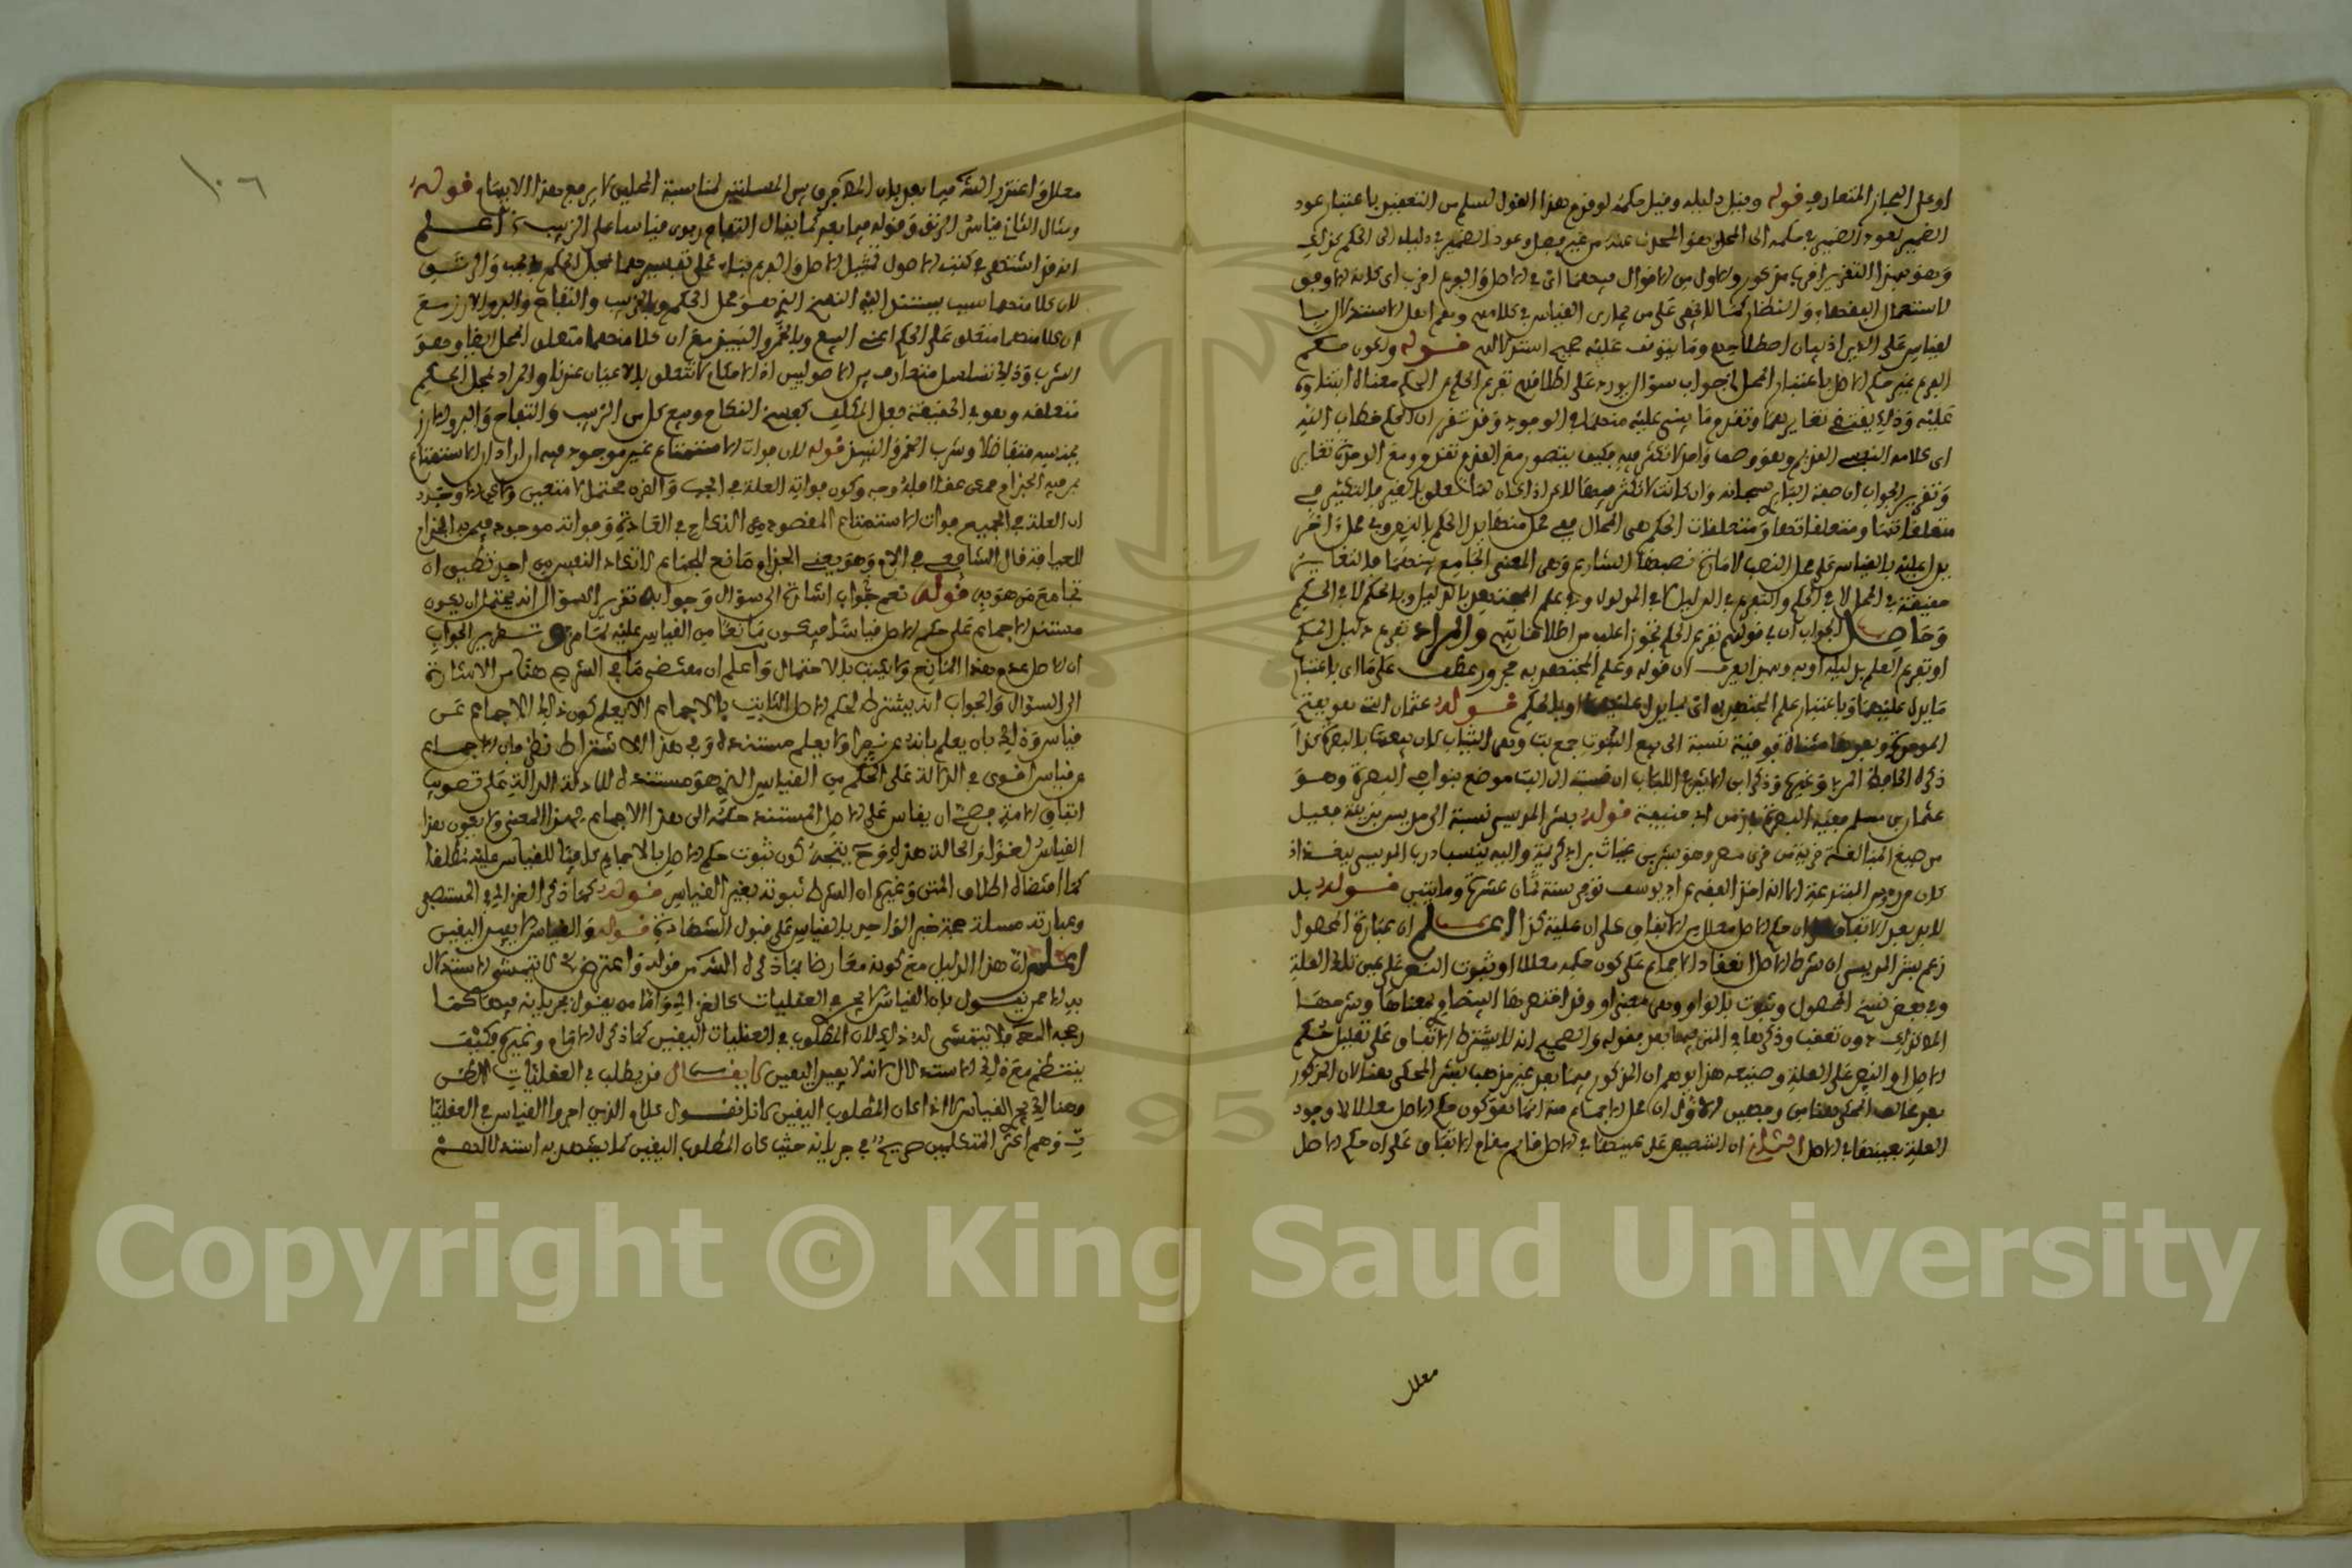 او على المجاز المتعارف قوله وقيل دليله وقيل حكمه لو قدم هذا القول لسلم من التعقيد باعتبار عود
الضمير لعود الضمير في حكمه الى المحل وهو المحدث عنه من غير فصل وعود الضمير في دليله الى الحكم
وهو بهذا التقرير اقرب مذكور والاول من الاقوال فيهما اي في الاصل والفرع اقرب اي لانه الاوفق
لاستعمال الفقهاء والنظار كما لا يخفى على من مارس القياس في كلامهم
لقياس على الخبر اذ بيان اصطلاحهم وما يتوقف عليه صحيح استدلالهم قوله ولكون حكم
الفرع غير حكم الاصل باعتبار المحل الخ جواب سؤال يورد على اطلاقهم تفريع الحكم على الحكم معناه ابتناؤه
عليه وذلك يقتضي تغايرهما وتقدم ما ينبني عليه منهما في الوجود وقد تقرر ان الحكم خطاب الله
اي كلامه النفسي القديم وهو وصف واحد لا تكثر فيه فكيف يتصور مع القدم تقدم ومع الوحدة تغاير
وتقرير الجواب ان صفة الباري سبحانه وان كانت لا تكثر فيها
متعلقاتها ومتعلقات الحكم هي المحال ففي محل منها يدل الحكم بالنص وفي محل آخر
يدل عليه بالقياس على محل النص لامارة نصبها الشارع وهي المعنى الجامع بينهما فالتغاير
حقيقة في المحل لا في الحكم والتفريع في الدليل لا في المدلول وفي علم المجتهد بالدليل وبالحكم لا في الحكم
وحاصل الجواب ان في قولهم تفريع الحكم تجوزا علم من اطلاقاتهم والمراد تفريع دليل الحكم
او تفريع العلم بدليله او به وبهذا يعرف ان قوله وعلم المجتهد به مجرور عطف على ما اي باعتبار
ما يدل عليهما وباعتبار علم المجتهد به اي بما يدل عليهما او بالحكم قوله عثمان البتي هو بفتح
الموحدة وبعدها مثناة فوقية نسبة الى بيع البتوت جمع بت وهي الثياب كان يبيعها بالبصرة كذا
ذكره الحافظ المزي وغيره وذكر ابن الاثير في اللباب ان البت موضع بنواحي البصرة وهو
عثمان بن مسلم فقيه البصرة زمن ابي حنيفة قوله بشر المريسي نسبة الى مريس بزنة فعيل
من صيغ المبالغة قرية من قرى مصر وهو بشر بن غياث بن ابي كريمة واليه ينسب درب المريسي ببغداذ
كان من رءوس المبتدعة الا انه اخذ الفقه عن ابي يوسف توفي سنة ثمان عشرة ومايتين قوله بل
لا بد بعد الاتفاق على ان حكم الاصل معلل من الاتفاق على ان علته كذا اعلم ان عبارة المحصول
زعم بشر المريسي ان شرط الاصل انعقاد الاجماع على كون حكمه معللا او ثبوت النص على عين تلك العلة
وفي بعض نسخ المحصول وثبوت بالواو وهي بمعنى او وقد اختصرها البيضاوي بمعناها وشرحها
المذكور دون تعقب وذكرها في المتن فيما بعد بقوله والصحيح انه لا يشترط الاتفاق على تعليل حكم
الاصل او النص على العلة وصنيعه هذا يوهم ان المذكور فيما بعد غير مذهب بشر المحكي هنا لان المذكور
بعد مخالف المحكي هنا من وجهين الاول ان محل الاجماع منه انما هو كون حكم الاصل معللا لا وجود
العلة بعينها في الاصل الثاني ان التنصيص على عينها في الاصل قائم مقام الاتفاق على ان حكم الاصل
معلل
١٠٦
معلل واعتذر الشارح فيما بعد بان الفرق بين المسئلتين لمناسبة المحلين لا يرفع هذا الايهام قوله
ومثال الثاني قياس الارز وقوله فيما بعد كما يقال التفاح ربوي قياسا على الزبيب اعلم
انه قد اشتهر في كتب الاصول تمثيل الاصل والفرع بناء على تفسيرهما بمحل الحكم
لان كلا منهما سبب يستند اليه الذهن الذي هو محل الحكم وبالزبيب والتفاح والبر والارز مع
ان كلا منهما متعلق محل الحكم اعني البيع وبالخمر والنبيذ مع ان كلا منهما متعلق المحل ايضا وهو
الشرب وذلك تساهل متعارف بين الاصوليين اذ الاحكام لا تتعلق بالاعيان عندنا والمراد بمحل الحكم
متعلقه وهو في الحقيقة فعل المكلف كفسخ النكاح وبيع كل من الزبيب والتفاح والبر والارز
بجنسه متفاضلا وشرب الخمر والنبيذ قوله لان فوات الاستمتاع غير موجود فيه
ان العلة في الجميع فوات الاستمتاع المقصود من النكاح في العادة وفواته موجود فيمن به الجذام
للعيافة قال الشافعي في الام وهو يعني الجذام مانع للجماع لا تكاد النفس من احد تطيب ان
تجامع من هو به قوله نعم جواب اشارة الى سؤال وجوابه تقرير السؤال انه يحتمل ان يكون
مستند الاجماع على حكم الاصل قياسا فيكون مانعا من القياس عليه لما مر وتقرير الجواب
ان الاصل عدم هذا المانع ولا يثبت بالاحتمال واعلم ان مقتضى ما في الشرح هنا من الاشارة
الى السؤال والجواب انه يشترط لحكم الاصل الثابت بالاجماع ان لا يعلم كون ذلك الاجماع عن
قياس وذلك بان يعلم بانه عن نص او لا يعلم مستنده وفي هذا الاشتراط نظر فان الاجماع
عن قياس اقوى في الدلالة على الحكم من القياس الذي هو مستنده للادلة الدالة على تصويب
اتفاق الامة فصح ان يقاس على الاصل المستند حكمه الى هذا الاجماع بهذا المعنى ولا يكون هذا
القياس لغوا والحالة هذه وح يتجه كون ثبوت حكم الاصل بالاجماع كافيا للقياس عليه مطلقا
كما اقتضاه اطلاق المتن وغيره ان الشرط ثبوته بغير القياس قوله كما ذكر الغزالي في المستصفى
وعبارته مسئلة حجة خبر الواحد بالقياس على قبول الشهادة قوله والقياس لا يفيد اليقين
اعلم ان هذا الدليل مع كونه معارضا بما ذكره الشارح من قوله واعترض لا يتمشى الاستدلال
به الا ممن يقول بان القياس لا يجري في العقليات كالغزالي واما من يقول بجريانه فيها كما
رجحه المص فلا يتمشى له ذلك لان المطلوب في العقليات اليقين كما ذكره الامام وغيره فكيف
ينتظم مع ذلك الاستدلال بانه لا يفيد اليقين لا يقال قد يطلب في العقليات الظن
وهنالك يجري القياس لا اذا كان المطلوب اليقين لانا نقول كلام الذين اجروا القياس في العقليا
ت وهم اكثر المتكلمين صريح في جريانه حيث كان المطلوب اليقين كما يشهد به استدلالهم
Copyright © King Saud University
95